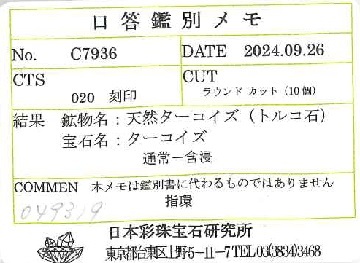 口答鑑別メモ
No. C7936 DATE 2024.09.26
CTS CUT
020 刻印 ラウンド カット (10個)
結果 鉱物名：天然ターコイズ (トルコ石)
宝石名：ターコイズ
通常－含浸
COMMEN 本メモは鑑別書に代わるものではありません
指環
049319
日本彩珠宝石研究所
東京都台東区上野5-11-7 TEL03(3834)3468